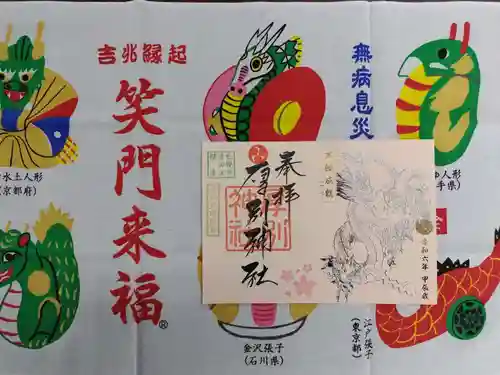 吉兆縁起
笑門来福®
無病息災
水土人形
(京都府)
人形
手県)
奉拝
厚別神社
令和六年 甲辰歳
金沢張子
(石川県)
江戸張子
(東京都)